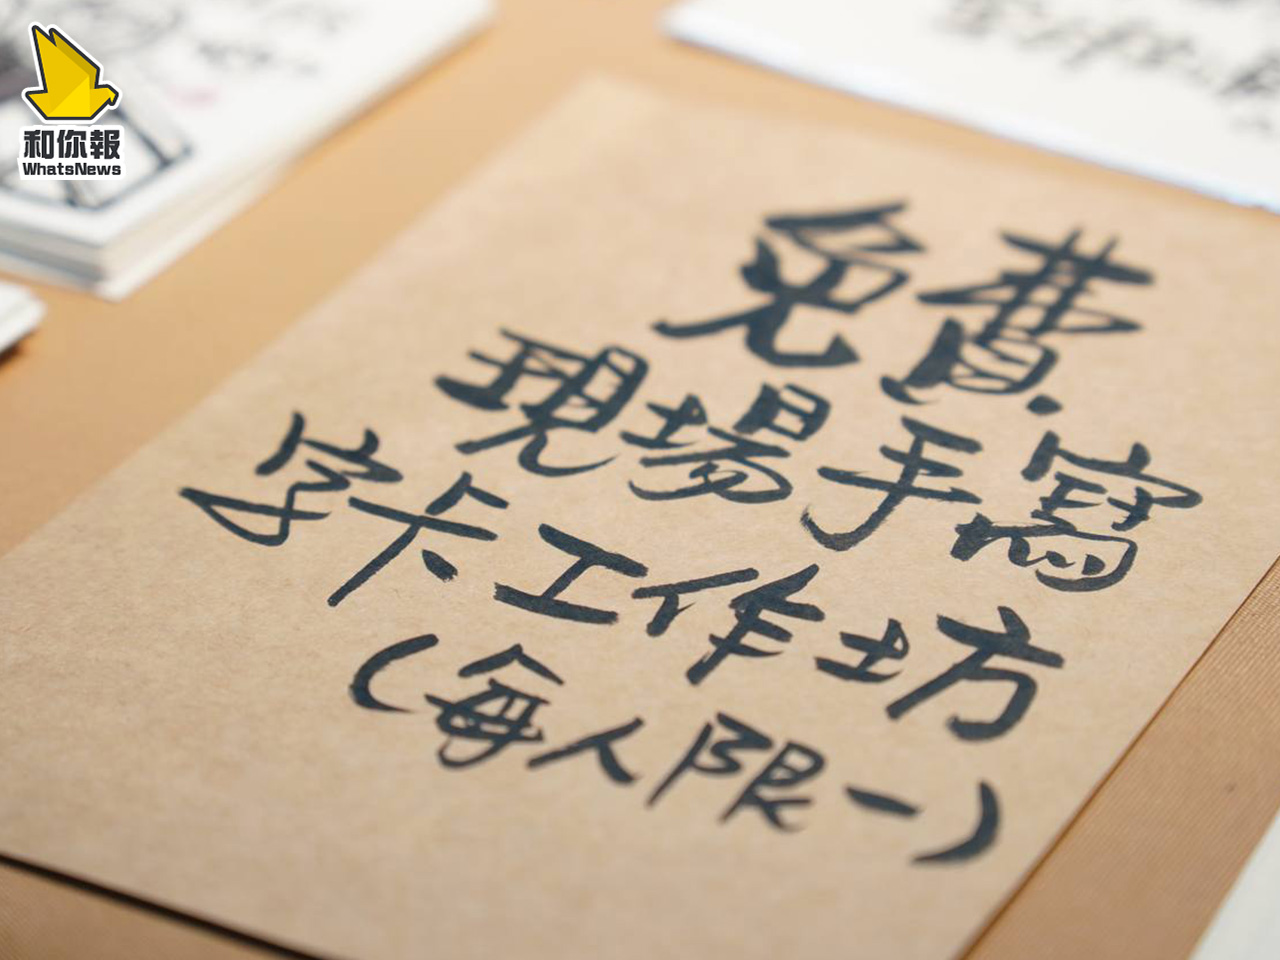 和你報
WhatsNews
免費
現場手寫
字卡工作坊
(每人限一)